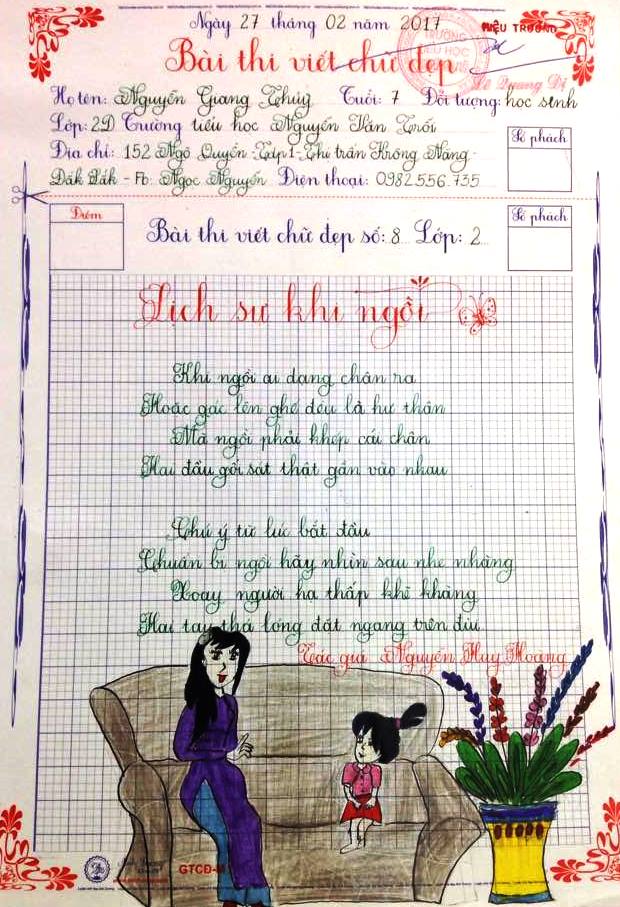 Ngày 27 tháng 02 năm 2017
HIỆU TRƯỞNG
Bài thi viết chữ đẹp
TRƯỜNG
TIỂU HỌC
Lê Quang Dị
Họ tên: Nguyễn Giang Thuỳ Tuổi: 7 Đối tượng: học sinh
Lớp: 2D Trường tiểu học Nguyễn Văn Trỗi
Địa chỉ: 152 Ngô Quyền - Tdp 1 - Thị trấn Krông Năng -
Đăk Lăk - Fb: Ngọc Nguyễn Điện thoại: 0982.556.735
Số phách
Điểm
Bài thi viết chữ đẹp số: 8 Lớp: 2
Số phách
Lịch sự khi ngồi
Khi ngồi ai dạng chân ra
Hoặc gác lên ghế đều là hư thân
Mà ngồi phải khép cái chân
Hai đầu gối sát thật gần vào nhau
Chú ý từ lúc bắt đầu
Chuẩn bị ngồi hãy nhìn sau nhẹ nhàng
Xoay người hạ thấp khẽ khàng
Hai tay thả lỏng đặt ngang trên đùi
Tác giả Nguyễn Huy Hoàng